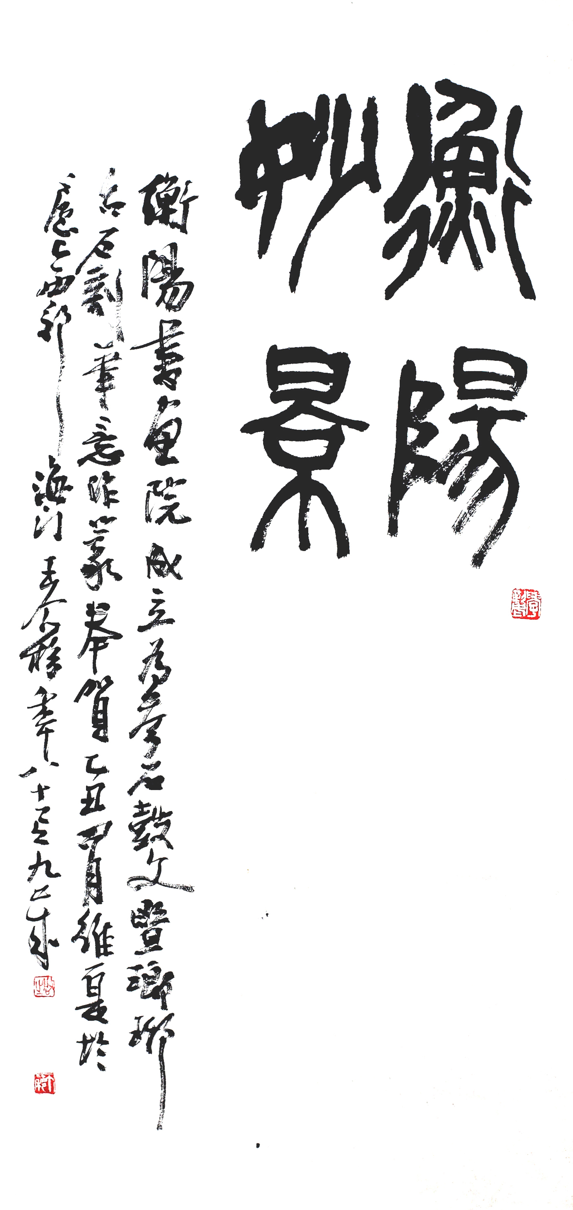 衡陽
妙景
衡陽書画院成立為參石鼓文暨瑯琊
古石刻筆意作篆奉賀乙丑四月維夏於
滬上西郊海門王个簃年八十九歲